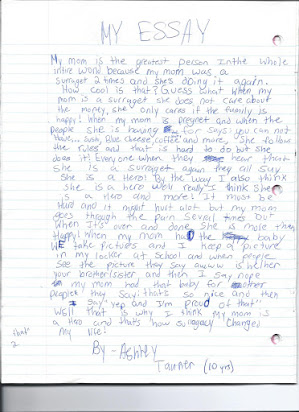 MY ESSAY
My mom is the greatest person In the whole
intire world because my mom was a
surraget 2 times and she's doing it again.
How cool is that? Guess what when my
mom is a surraget she does not care about
the money, she only cares if the family is
happy! When my mom is pregnet and when the
people she is having for says you can not
have... sushi, Blue cheese, coffee and more, She follows
the rules and that is hard to do but she
does it! Every one when they hear that
she is a surraget again they all say
She is a Hero! By the way I also think
she is a hero well really I think she
is a Hero and more! It must be
hard and it might hurt alot but my mom
goes through the pain Sevral times but
when It's over and done she is more then
Happy! When my mom the baby
WE take pictures and I keep a picture
in my locker at school and when people
see the picture they say awww is he/her
your brother/sister and then I say nope
my mom had that baby for other
people they say that's so nice and then
I say yep and I'm proud of that"
Well that is why I think my mom is
a Hero and that's how surogacy changed
my life!
By - Ashley
Tanner (10 yrs)
2